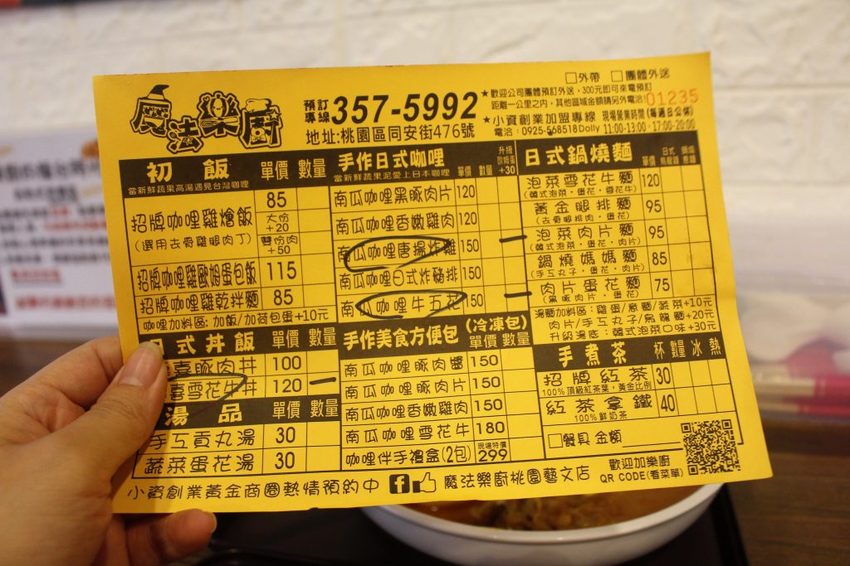 魔法樂廚
預訂專線 357-5992
地址:桃園區同安街476號
□外帶 □團體外送
★歡迎公司團體預訂外送,300元即可來電預訂
距離一公里之內,其他區域金額請另外電洽
01235
★小資創業加盟專線 現場營業時間(每週日公休)
電洽:0925-568518Dolly 11:00-13:00·17:00-20:00
初飯 單價 數量
當新鮮蔬果高湯遇見台灣咖哩
招牌咖哩雞燴飯 85
(選用去骨雞腿肉丁)
大份+20
雙份肉+50
招牌咖哩雞歐姆蛋包飯 115
招牌咖哩雞乾拌麵 85
咖哩加料區:加飯/加荷包蛋+10元
日式丼飯 單價 數量
豚肉丼 100
雪花牛丼 120
湯品 單價 數量
手工貢丸湯 30
蔬菜蛋花湯 30
手作日式咖哩
當新鮮蔬果泥愛上日本咖哩
單價 數量
+30
南瓜咖哩黑豚肉片 120
南瓜咖哩香嫩雞肉 120
南瓜咖哩唐揚炸雞 150
南瓜咖哩日式炸豬排 150
南瓜咖哩牛五花 150
手作美食方便包(冷凍包)
單價 數量
南瓜咖哩豚肉醬 150
南瓜咖哩豚肉片 150
南瓜咖哩香嫩雞肉 150
南瓜咖哩雪花牛 180
咖哩伴手禮盒(2包) 現場特價 299
日式鍋燒麵 單價 日式烏龍麵 鍋燒意麵
泡菜雪花牛麵 120
(韓式泡菜·蛋花·雪花牛)
黃金腿排麵 95
(去骨腿排肉·蛋花)
泡菜肉片麵 95
(韓式泡菜·蛋花·肉片)
鍋燒媽媽麵 85
(手工丸子·蛋花·肉片)
肉片蛋花麵 75
(黑豚肉片·蛋花)
湯麵加料區:雞蛋/意麵/蔬菜+10元
肉片/手工丸子/烏龍麵+20元
升級湯底:韓式泡菜口味+30元
手煮茶 杯數量 冰 熱
招牌紅茶 30
100%頂級紅茶葉,黃金比例
紅茶拿鐵 40
100%鮮奶茶
□餐具 金額
小資創業黃金商圈熱情預約中
魔法樂廚桃園藝文店
歡迎加樂廚
QR CODE(看菜單)